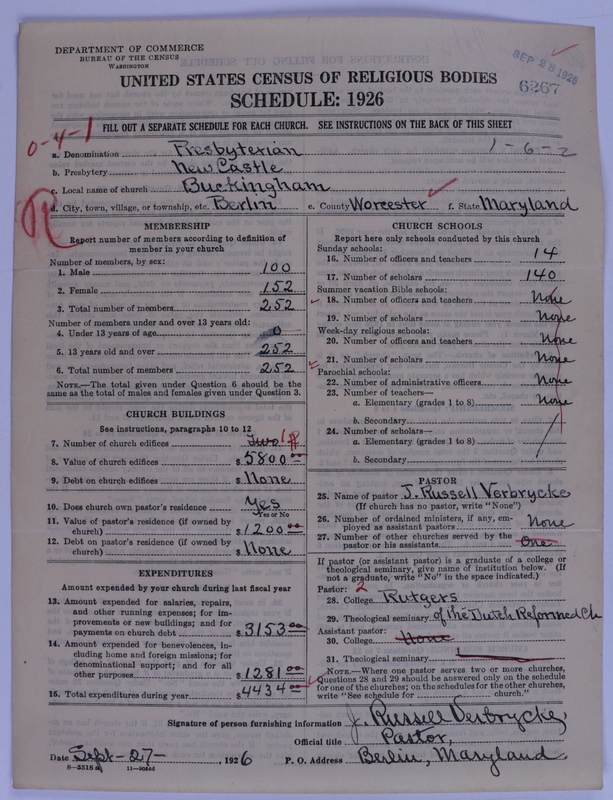 DEPARTMENT OF COMMERCE
BUREAU OF THE CENSUS
WASHINGTON
SEP 28 1926
6267
UNITED STATES CENSUS OF RELIGIOUS BODIES
SCHEDULE: 1926
FILL OUT A SEPARATE SCHEDULE FOR EACH CHURCH. SEE INSTRUCTIONS ON THE BACK OF THIS SHEET
0-4-1
a. Denomination Presbyterian 1-6-2
b. Presbytery New Castle
c. Local name of church Buckingham
d. City, town, village, or township, etc. Berlin e. County Worcester f. State Maryland
MEMBERSHIP
Report number of members according to definition of member in your church
Number of members, by sex:
1. Male 100
2. Female 152
3. Total number of members 252
Number of members under and over 13 years old:
4. Under 13 years of age 0
5. 13 years old and over 252
6. Total number of members 252
NOTE.—The total given under Question 6 should be same as the total of males and females given under Question 3.
CHURCH BUILDINGS
See instructions, paragraphs 10 to 12
7. Number of church edifices Two 1
8. Value of church edifices $ 5800 00
9. Debt on church edifices $ None
10. Does church own pastor's residence Yes
Yes or No
11. Value of pastor's residence (if owned by church) $ 1200 00
12. Debt on pastor's residence (if owned by church) $ None
EXPENDITURES
Amount expended by your church during last fiscal year
13. Amount expended for salaries, repairs, and other running expenses; for improvements or new buildings; and for payments on church debt $ 3153 00
14. Amount expended for benevolences, including home and foreign missions; for denominational support; and for all other purposes $ 1281 00
15. Total expenditures during year $ 4434 00
CHURCH SCHOOLS
Report here only schools conducted by this church
Sunday schools:
16. Number of officers and teachers 14
17. Number of scholars 140
Summer vacation Bible schools:
18. Number of officers and teachers None
19. Number of scholars None
Week-day religious schools:
20. Number of officers and teachers None
21. Number of scholars None
Parochial schools:
22. Number of administrative officers None
23. Number of teachers—
a. Elementary (grades 1 to 8) None
b. Secondary
24. Number of scholars—
a. Elementary (grades 1 to 8)
b. Secondary
PASTOR
25. Name of pastor J. Russell Verbrycke
(If church has no pastor, write "None")
26. Number of ordained ministers, if any, employed as assistant pastors None
27. Number of other churches served by the pastor or his assistants One
If pastor (or assistant pastor) is a graduate of a college or theological seminary, give name of institution below. (If not a graduate, write "No" in the space indicated.)
Pastor: 2
28. College Rutgers
29. Theological seminary of the Dutch Reformed Ch
Assistant pastor:
30. College None
31. Theological seminary
NOTE.—Where one pastor serves two or more churches, Questions 28 and 29 should be answered only on the schedule for one of the churches; on the schedules for the other churches, write "See schedule for church."
Signature of person furnishing information J. Russell Verbrycke,
Official title Pastor,
Date Sept-27-, 1926 P. O. Address Berlin, Maryland.